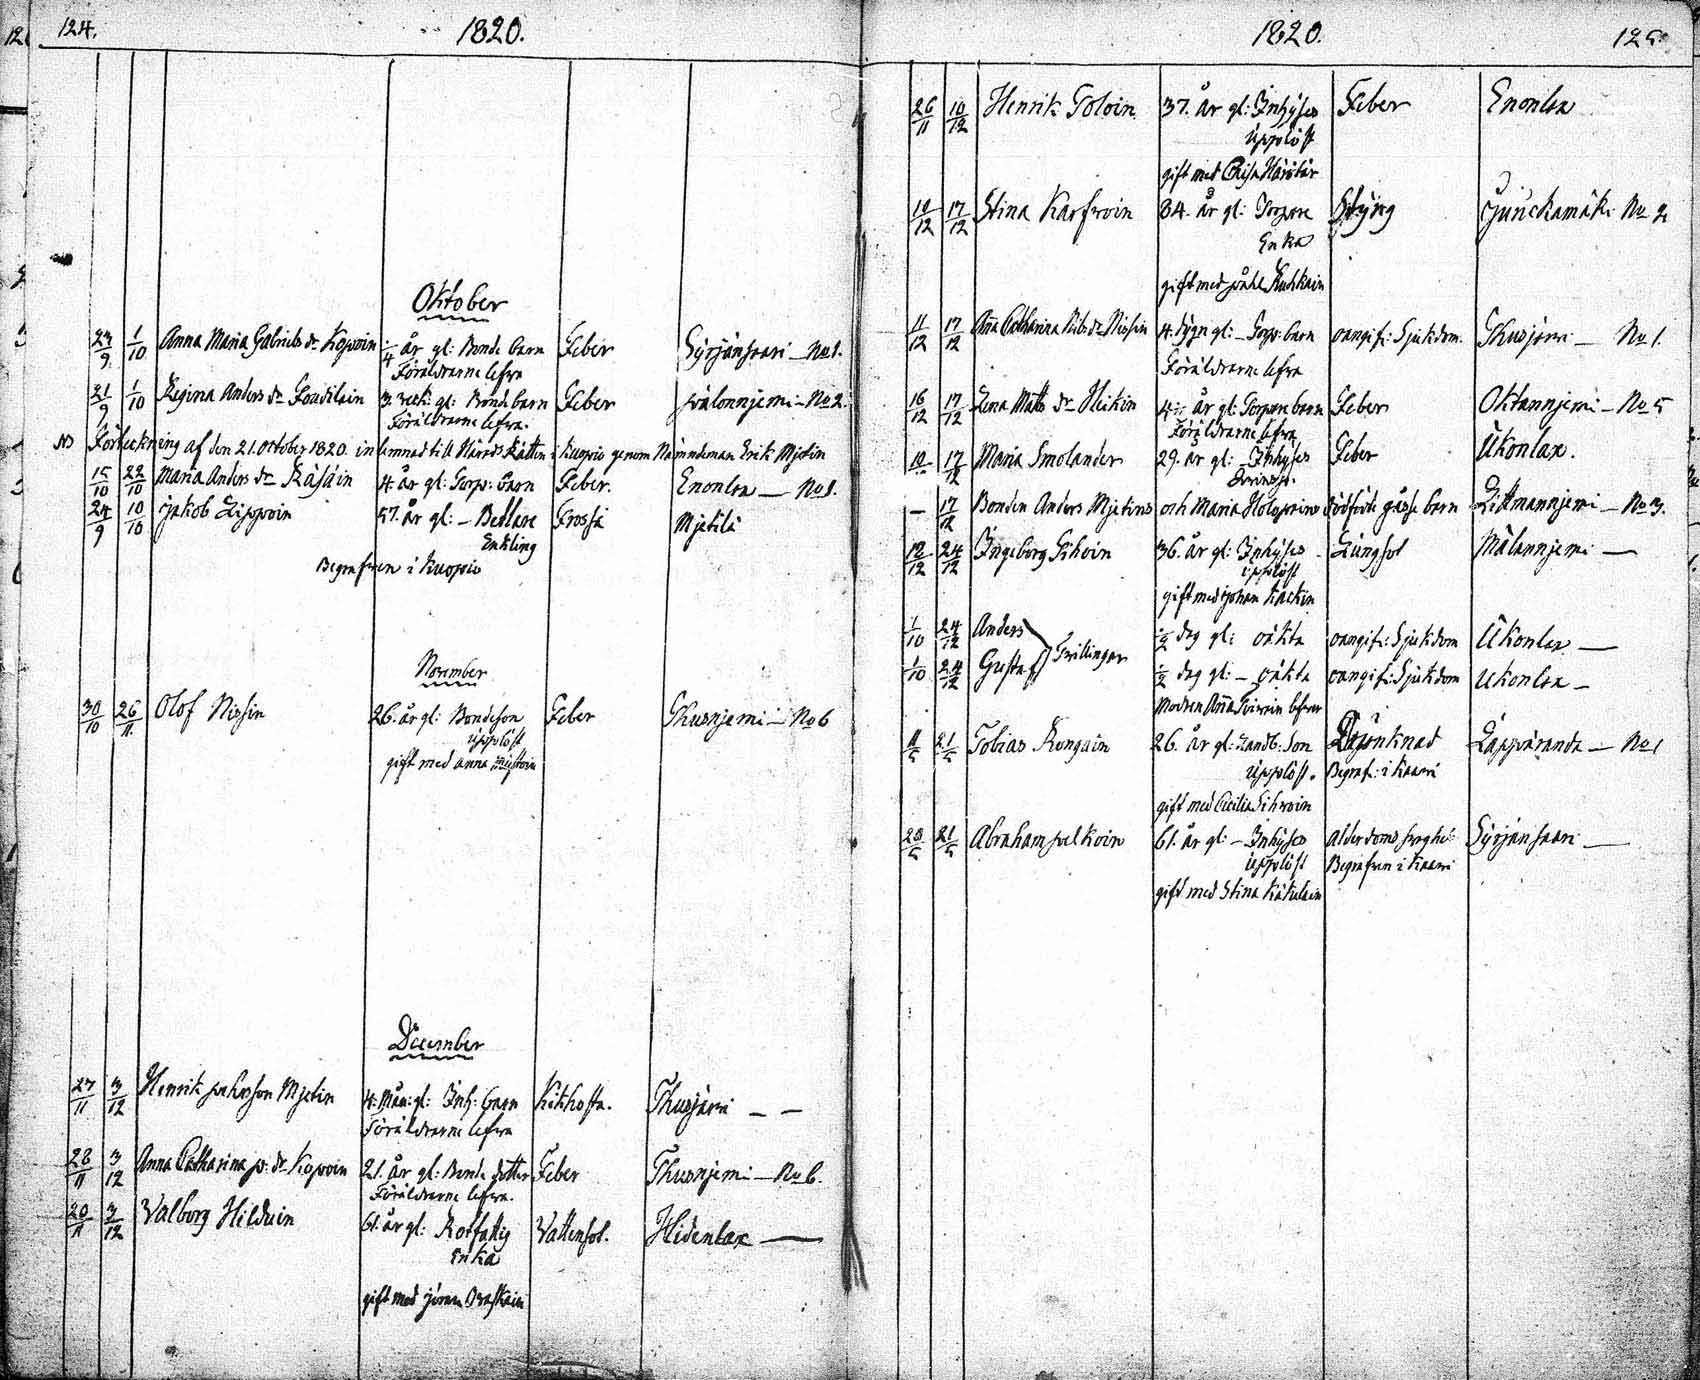 124.
1820.
Oktober
23/9 1/10 Anna Maria Gabriels dr Kopoin 1/4 år gl: Bonde barn Feber Syrjänsaari No 1.
Föräldrarne lefva
21/9 1/10 Regina Anders dr 3 veck: gl: Bonde barn Feber Pålonnjemi No 2.
Föräldrarne lefva.
NB Förteckning af den 21. October 1820. inlemnad till Härads Rätten i Kuopio genom Nämndeman Erik Mjetin
15/10 22/10 Maria Anders dr Räsäin 4. år gl: Torp: barn Feber. Enonlax No 1.
24/9 10/10 Jakob Lippoin 57. år gl: Betlare Frossa Mjetilä
Enkling
Begrafven i Kuopio
November
30/10 26/11. Olof Nissin 26. år gl: Bondeson Feber Thusnjemi No 6
upplöst
gift med Anna
December
27/11 3/12 Henrik Påhlsson Mjetin 4. Mån: gl: Inh: barn Kikhosta. Thusjärvi
Föräldrarne lefva
28/11 3/12 Anna Catharina P: dr Kopoin 21. år gl: Bonde dotter Feber Thusnjemi No 6.
Föräldrarne lefva.
20/11 3/12 Valborg Hilduin 61. år gl: Rotfattig Vattensot. Hidenlax
Enka
gift med Jöran
1820.
125.
26/11 10/12 Henrik Toloin 37. år gl: Inhyses Feber Enonlax
upplöst
gift med
10/12 17/12 Stina Karfvoin 84. år gl: Torpare Styng Junckamäki No 2
Enka
gift med Påhl Ruskain
11/12 17/12 Aña Catharina dr Nissin 4. dygn gl: Torp: barn oangif: Sjukdom. Thusjärvi No 1.
Föräldrarne lefva
16/12 17/12 Lena Matts dr Heikin 4 år gl: Torpare barn Feber Oktannjemi No 5
Föräldrarne lefva
10 17/12 Maria Smolander 29. år gl: Inhyses Feber Ukonlax.
17/12 Bonden Anders Mjetins och Maria Holopains dödfödt gåsse barn Littmannjemi No 3.
12/12 24/12 Ingeborg Sihvoin 36. år gl: Inhyses Lungsot Mälannjemi
upplöst
gift med Johan Hackin
1/10 24/12 Anders
Tvillingar 1/2 dag gl: oäkta oangif: Sjukdom Ukonlax
1/10 24/12 Gustaf 1/2 dag gl: oäkta oangif: Sjukdom Ukonlax
Modren Aña lefver
11/5 21/5 Tobias Rongain 26. år gl: Landb: Son Lapparanda No 1
upplöst. Begraf: i Kaavi
gift med Cicilia Sihvoin
20/5 21/5 Abraham Pelkoin 61. år gl: Inhyses Alderdoms svaghet Syrjänsaari
upplöst Begrafven i Kaavi
gift med Stina